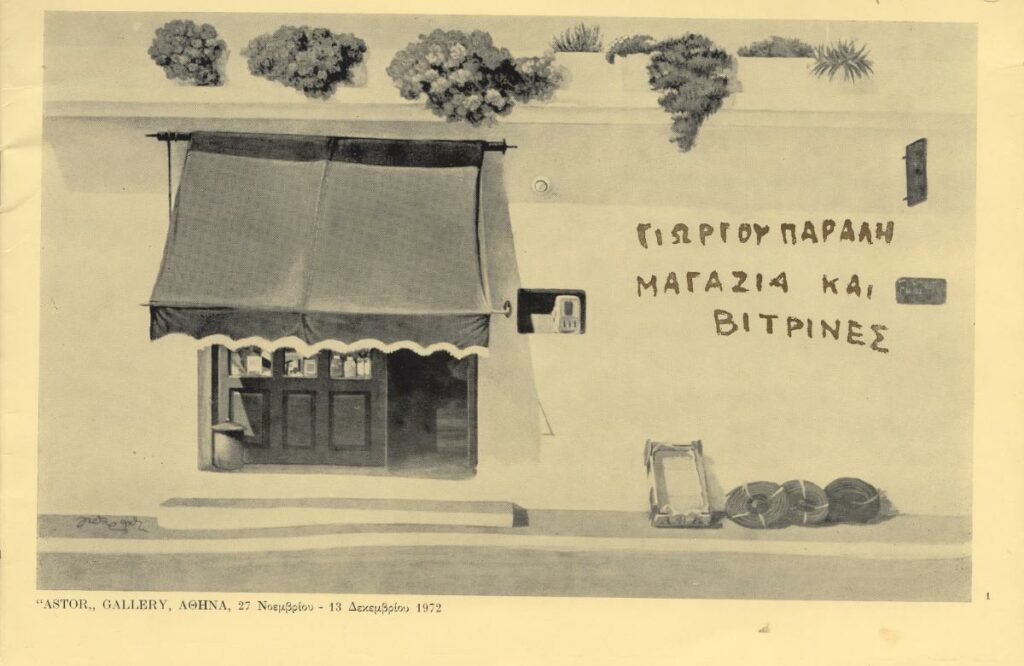 ΓΙΩΡΓΟΥ ΠΑΡΑΛΗ
ΜΑΓΑΖΙΑ ΚΑΙ
ΒΙΤΡΙΝΕΣ
“ASTOR„ GALLERY, ΑΘΗΝΑ, 27 Νοεμβρίου - 13 Δεκεμβρίου 1972
1